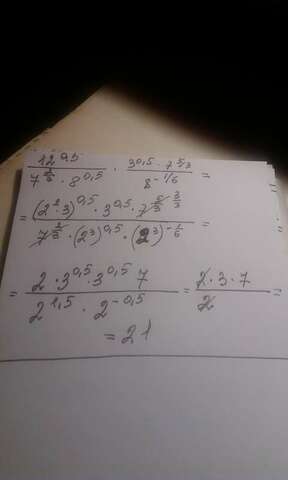 12^0,5 / (7^(2/3) · 8^0,5) · (3^0,5 · 7^(5/3)) / 8^(-1/6) =
= ((2^2 · 3)^0,5 · 3^0,5 · 7^(5/3) ^(3/3)) / (7^(2/3) · (2^3)^0,5 · (2^3)^(-1/6)) =
= (2 · 3^0,5 · 3^0,5 · 7) / (2^1,5 · 2^-0,5) = (2 · 3 · 7) / 2 =
= 21